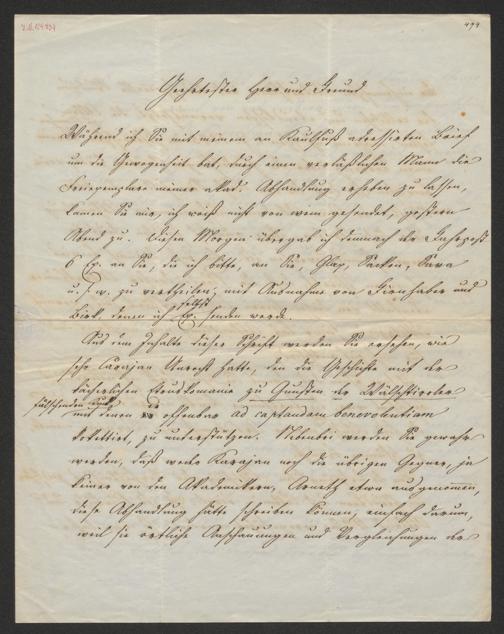 499
Geehrtester Herr und Freund
Während ich Sie mit meinem an Kaulfuß adressirten Brief
um die Gewogenheit bat, durch einen verläßlichen Mann die
Freiexemplare meiner akad. Abhandlung erheben zu lassen,
kamen Sie mir, ich weiß nicht von wem gesendet, gestern
Abend zu. Diesen Morgen übergab ich demnach der Fahrpost
6 Ex. an Sie, die ich bitte, an Sie, Glax, Sacken, Sava
u.s.w. zu vertheilen, mit Ausnahme von Firnhaber und
Birk, denen ich selbst Ex. senden werde.
Aus dem Inhalte dieser Schrift werden Sie ersehen, wie
sehr Carajan Unrecht hatte, den die Geschichte mit der
lächerlichen Etruskomanie zu Gunsten der Wälschtiroler
fälschenden
mit denen er offenbar ad captandam benevolentiam
kokettirt, zu unterstützen. Nebenbei werden Sie gewahr
werden, daß weder Karajan noch die übrigen Gegner, ja
keiner von den Akademikern, Arneth etwa ausgenommen,
diese Abhandlung hätte schreiben können, einfach darum,
weil sie örtliche Anschauungen und Vergleichungen der